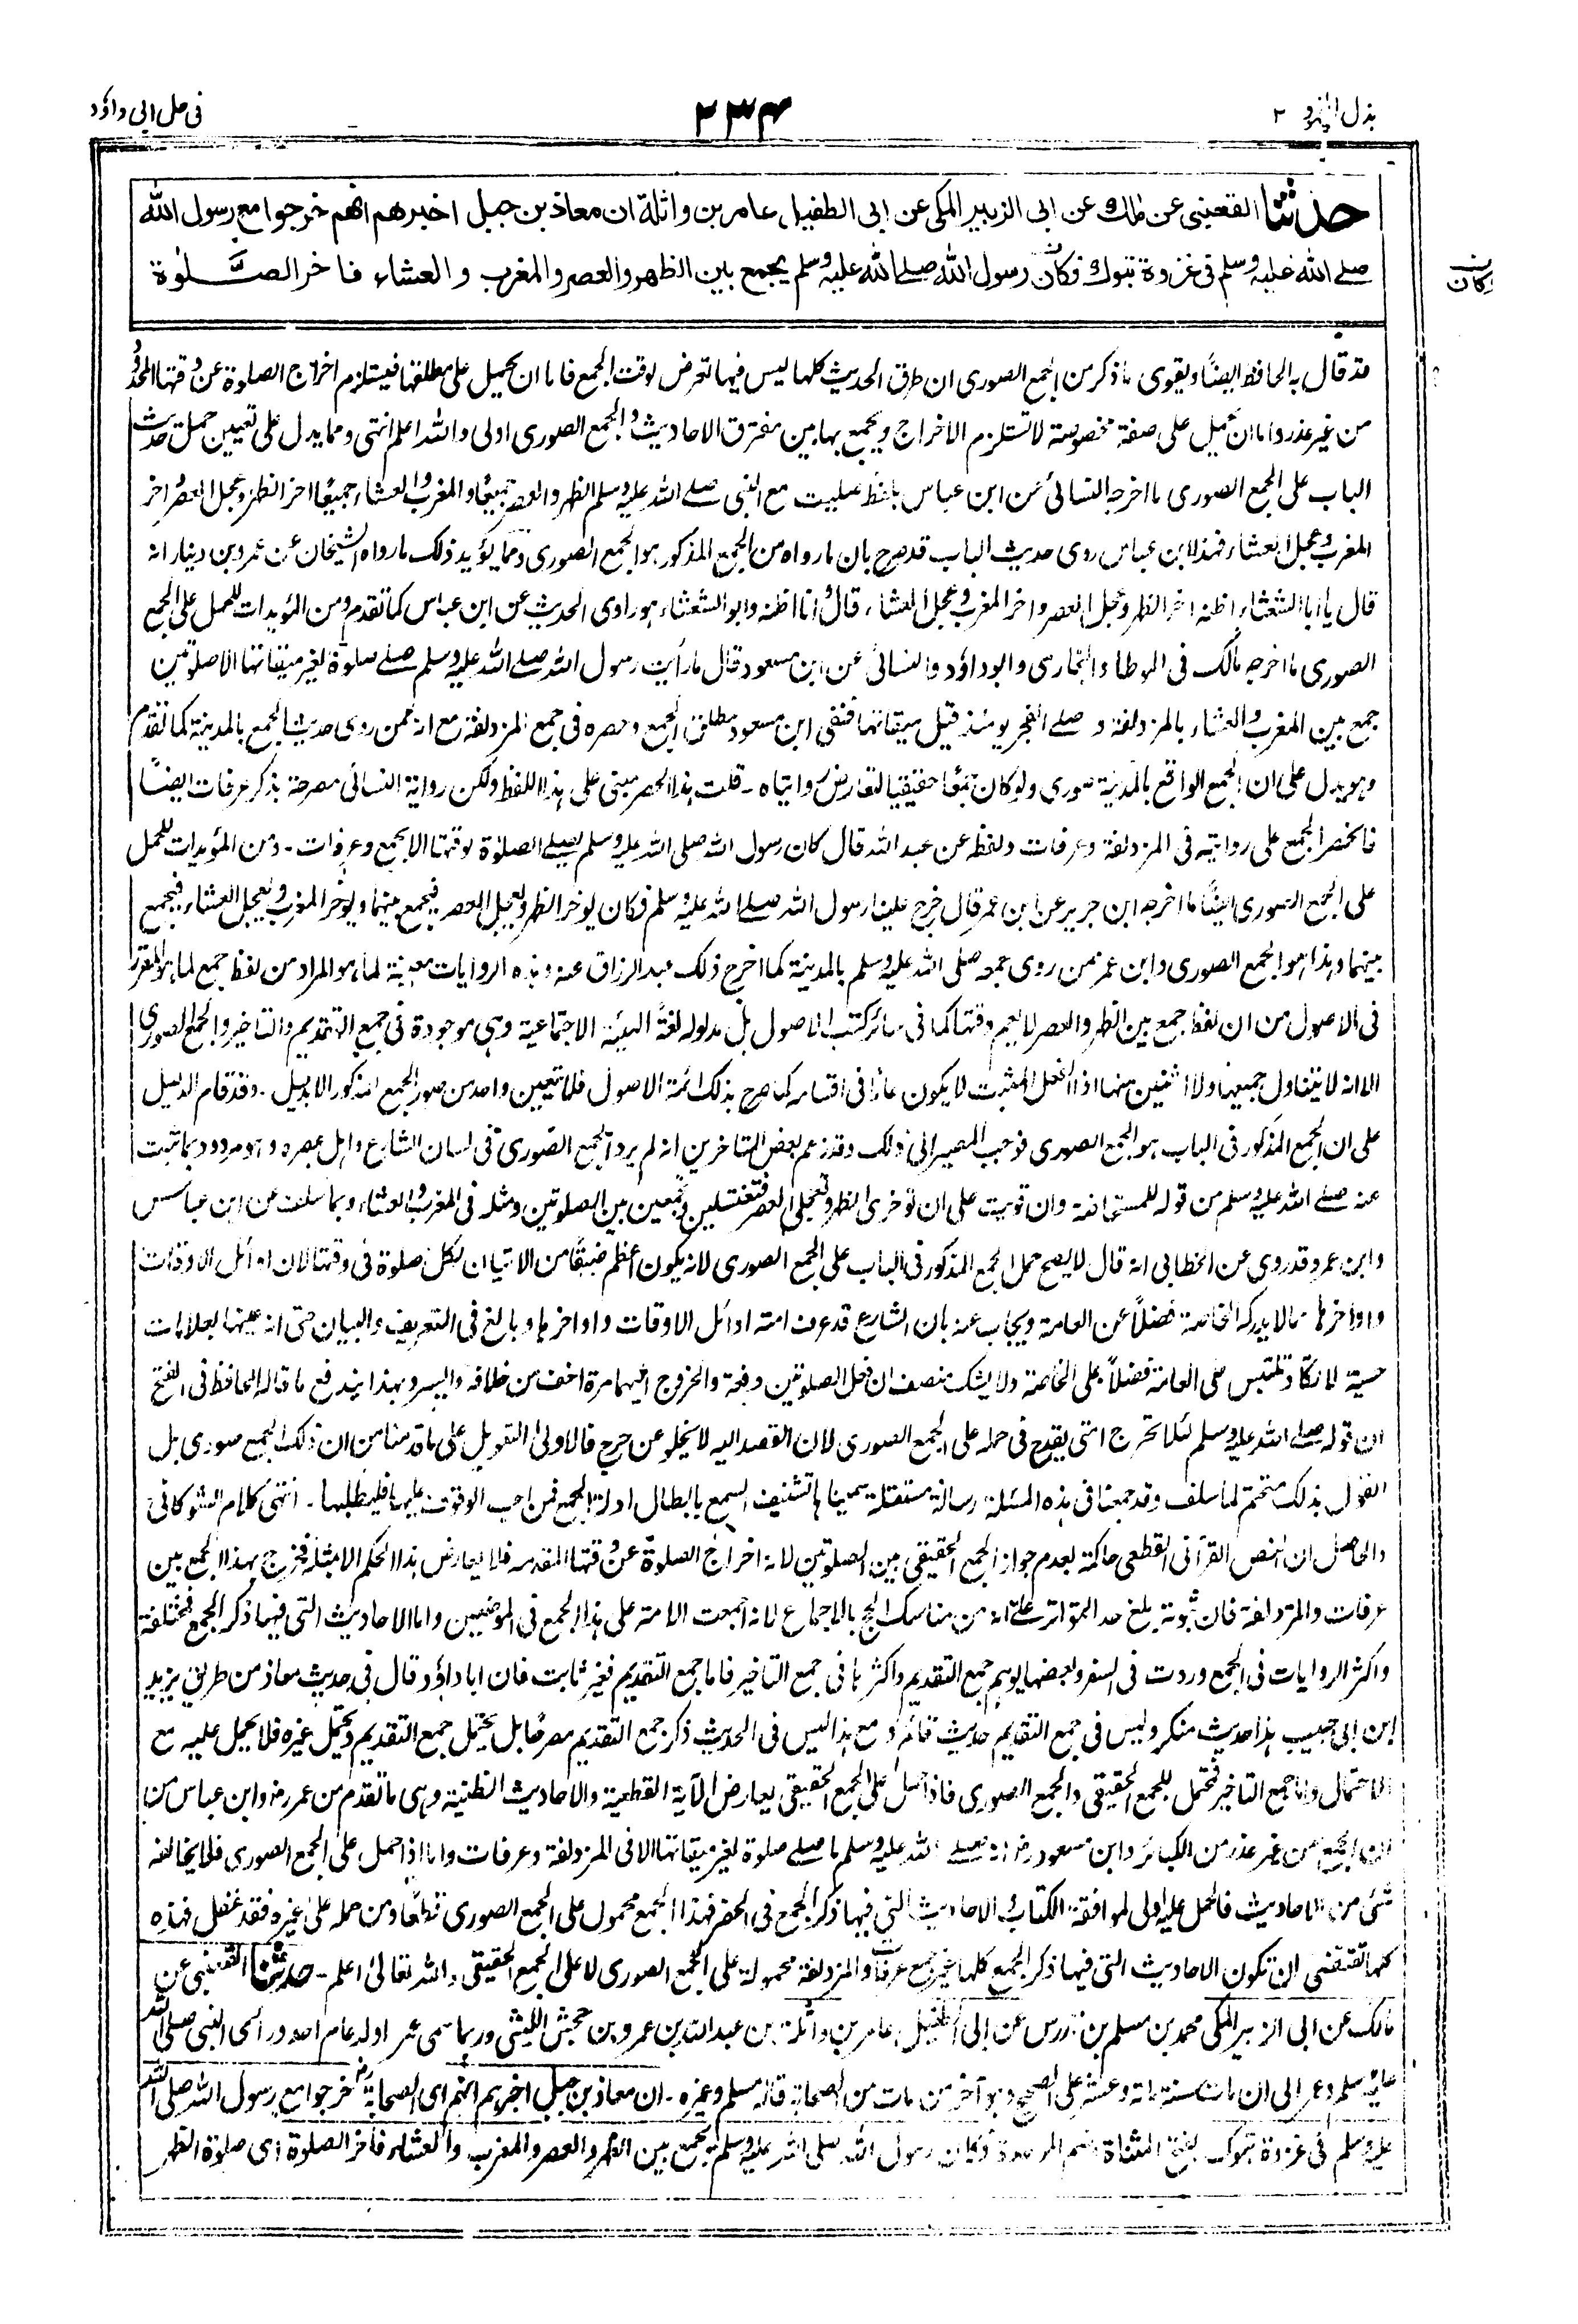 بذل المجهود ٢
٢٣٤
فی حل ابی داؤد
حدثنا القعنبی عن مالك عن ابی الزبير المکی عن ابی الطفيل عامر بن واثلة ان معاذ بن جبل اخبرهم انهم خرجوا مع رسول الله
صلے الله عليه وسلم فی غزوة تبوك فكان رسول الله صلے الله عليه وسلم يجمع بين الظهر والعصر والمغرب والعشاء فاخر الصلوة
كان
قد قال به الحافظ ايضًا ويقوى ما ذكر من الجمع الصورى ان طرق الحديث كلها ليس فيها تعرض لوقت الجمع فاما ان يحمل على مطلقها فيستلزم اخراج الصلوة عن وقتها المحدود
من غير عذر واما ان يحمل على صفة مخصوصة لا تستلزم الاخراج ويجمع بها بين مفترق الاحاديث والجمع الصورى اولى والله اعلم انتهى ومما يدل على تعيين حمل حديث
الباب على الجمع الصورى ما اخرجه النسائى عن ابن عباس بلفظ صليت مع النبى صلے الله عليه وسلم الظهر والعصر جميعًا والمغرب والعشاء جميعًا اخر الظهر وعجل العصر واخر
المغرب وعجل العشاء فهذا ابن عباس روى حديث الباب قد صرح بان ما رواه من الجمع المذكور هو الجمع الصورى ومما يؤيد ذلك ما رواه الشيخان عن عمرو بن دينار انه
قال يا ابا الشعثاء اظنه اخر الظهر وعجل العصر واخر المغرب وعجل العشاء، قال وانا اظنه وابو الشعثاء هو راوى الحديث عن ابن عباس كما تقدم ومن المؤيدات للحمل على الجمع
الصورى ما اخرجه مالك فى الموطا والبخارى وابو داؤد والنسائى عن ابن مسعود قال ما رأيت رسول الله صلے الله عليه وسلم صلے صلوة لغير ميقاتها الا صلوتين
جمع بين المغرب والعشاء بالمزدلفة وصلے الفجر يومئذ قبل ميقاتها فنفى ابن مسعود مطلق الجمع وحصره فى جمع المزدلفة مع انه ممن روى حديث الجمع بالمدينة كما تقدم
وهو يدل على ان الجمع الواقع بالمدينة صورى ولو كان جمعًا حقيقيا لتعارض روايتاه - قلت هذا الحصر مبنى على هذا اللفظ ولكن رواية النسائى مصرحة بذكر عرفات ايضًا
فانحصر الجمع على روايتيه فى المزدلفة وعرفات ولفظه عن عبد الله قال كان رسول الله صلى الله عليه وسلم يصلے الصلوة لوقتها الا بجمع وعرفات - ومن المؤيدات للحمل
على الجمع الصورى ايضًا ما اخرجه ابن جرير عن ابن عمر قال خرج علينا رسول الله صلے الله عليه وسلم فكان يؤخر الظهر ويعجل العصر فيجمع بينهما ويؤخر المغرب ويعجل العشاء فيجمع
بينهما وهذا هو الجمع الصورى وابن عمر ممن روى جمعه صلى الله عليه وسلم بالمدينة كما اخرج ذلك عبد الرزاق عنه وهذه الروايات معينة لما هو المراد من لفظ جمع لما هو المقرر
فى الاصول من ان لفظ جمع بين الظهر والعصر لا يعم وقتها كما فى سائر كتب الاصول بل مدلوله لغة الهيئة الاجتماعية وهى موجودة فى جمع التقديم والتاخير والجمع الصورى
الا انه لا يتناول جميعها ولا اثنين منها اذ الفعل المثبت لا يكون عامًا فى اقسامه كما صرح بذلك ائمة الاصول فلا يتعين واحد من صور الجمع المذكور الا بدليل - وقد قام الدليل
على ان الجمع المذكور فى الباب هو الجمع الصورى فوجب المصير الى ذلك وقد زعم بعض المتاخرين انه لم يرد الجمع الصورى فى لسان الشارع واهل عصره وهو مردود بما ثبت
عنه صلے الله عليه وسلم من قوله للمستحاضة وان قويت على ان تؤخرى الظهر وتعجلى العصر فتغتسلين وتجمعين بين الصلوتين ومثله فى المغرب والعشاء وبما سلف عن ابن عباس
وابن عمر وقد روى عن الخطابى انه قال لا يصح حمل الجمع المذكور فى الباب على الجمع الصورى لانه يكون اعظم ضيقًا من الاتيان بكل صلوة فى وقتها لان اوائل الاوقات
واواخرها مما لا يدركه الخاصة فضلًا عن العامة ويجاب عنه بان الشارع قد عرف امته اوائل الاوقات واواخرها وبالغ فى التعريف والبيان حتى انه عينها بعلامات
حسية لا تكاد تلتبس على العامة فضلًا على الخاصة ولا يشك منصف ان فعل الصلوتين دفعة والخروج اليهما مرة اخف من خلافه وايسر وبهذا يندفع ما قاله الحافظ فى الفتح
ان قوله صلے الله عليه وسلم لئلا تحرج امتى يقدح فى حمله على الجمع الصورى لان القصد اليه لا يخلو عن حرج فالاولى التعويل على ما قدمنا من ان ذلك الجمع صورى بل
القول بذلك متحتم لما سلف وقد جمعنا فى هذه المسئلة رسالة مستقلة سميناها تشنيف السمع بابطال ادلة الجمع فمن احب الوقوف عليها فليطلبها - انتهى كلام الشوكانى
والحاصل ان النص القرآنى القطعى حاكمة بعدم جواز الجمع الحقيقى بين الصلوتين لانه اخراج الصلوة عن وقتها المقدر له فلا يعارض هذا الحكم الا مثله فخرج بهذا الجمع بين
عرفات والمزدلفة فان ثبوته بلغ حد التواتر على انه من مناسك الحج بالاجماع لانه اجمعت الامة على هذا الجمع فى الموضعين واما الاحاديث التى فيها ذكر الجمع فمختلفة
واكثر الروايات فى الجمع وردت فى السفر وبعضها يوهم جمع التقديم واكثرها فى جمع التاخير فاما جمع التقديم فغير ثابت فان ابا داؤد قال فى حديث معاذ من طريق يزيد
ابن ابى حبيب هذا حديث منكر وليس فى جمع التقديم حديث قائم ومع هذا ليس فى الحديث ذكر جمع التقديم مصرحًا بل يحتمل جمع التقديم ويحتمل غيره فلا يحمل عليه مع
الاحتمال واما جمع التاخير فمحتمل للجمع الحقيقى والجمع الصورى فاذا حمل على الجمع الحقيقى يعارض الآية القطعية والاحاديث الظنية وهى ما تقدم من عمر رضـ وابن عباس من
ان الجمع من غير عذر من الكبائر وابن مسعود رضـ انه صلے الله عليه وسلم ما صلے صلوة لغير ميقاتها الا فى المزدلفة وعرفات واما اذا حمل على الجمع الصورى فلا يخالفه
شئ من الاحاديث فالحمل عليه اولى لموافقة الكتاب والاحاديث التى فيها ذكر الجمع فى الحضر فهذا الجمع محمول على الجمع الصورى قطعًا ومن حمله على غيره فقد غفل فهذه
كلها تقتضى ان تكون الاحاديث التى فيها ذكر الجمع كلها غير جمع عرفات والمزدلفة محمولة على الجمع الصورى لا على الجمع الحقيقى والله تعالى اعلم - حدثنا القعنبى عن
مالك عن ابى الزبير المكى محمد بن مسلم بن تدرس عن ابى الطفيل عامر بن واثلة بن عبد الله بن عمرو بن جحش الليثى وربما سمى عمر اوله عام احد ورأى النبى صلى الله
عليه وسلم وعمر الى ان مات سنة مائة وعشر على الصحيح وهو آخر من مات من الصحابة قاله مسلم وغيره - ان معاذ بن جبل اخبرهم انهم اى الصحابة رضـ خرجوا مع رسول الله صلى الله
عليه وسلم فى غزوة تبوك بفتح المثناة وضم الموحدة فكان رسول الله صلى الله عليه وسلم يجمع بين الظهر والعصر والمغرب والعشاء فأخر الصلوة اى صلوة الظهر